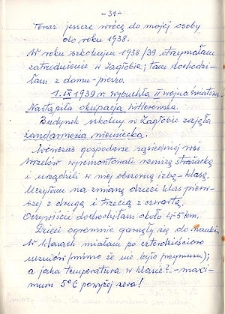 - 31 -
Teraz jeszcze wrócę do mojej osoby
do roku 1938.
W roku szkolnym 1938/39 otrzymałam
zatrudnienie w Zagłobie; tam dochodzi-
łam z domu - pieszo.
1.IX 1939 r. wybuchła II wojna światowa.
Nastąpiła okupacja hitlerowska.
Budynek szkolny w Zagłobie zajęła
żandarmeria niemiecka.
Wówczas gospodarze sąsiedniej wsi
wyremontowali remizę strażacką
i urządzili w niej obszerną izbę - klasę.
Uczyłam na zmianę dzieci klas pierw-
szej z drugą i trzecią z czwartą.
Oczywiście dochodziłam około 4-5 km.
Dzieci ogromnie garnęły się do nauki.
W klasach miałam po czterdzieścioro
uczniów (mimo że nie było przymusu);
a jaka temperatura w klasie! - maxi-
mum 5°C powyżej zera!